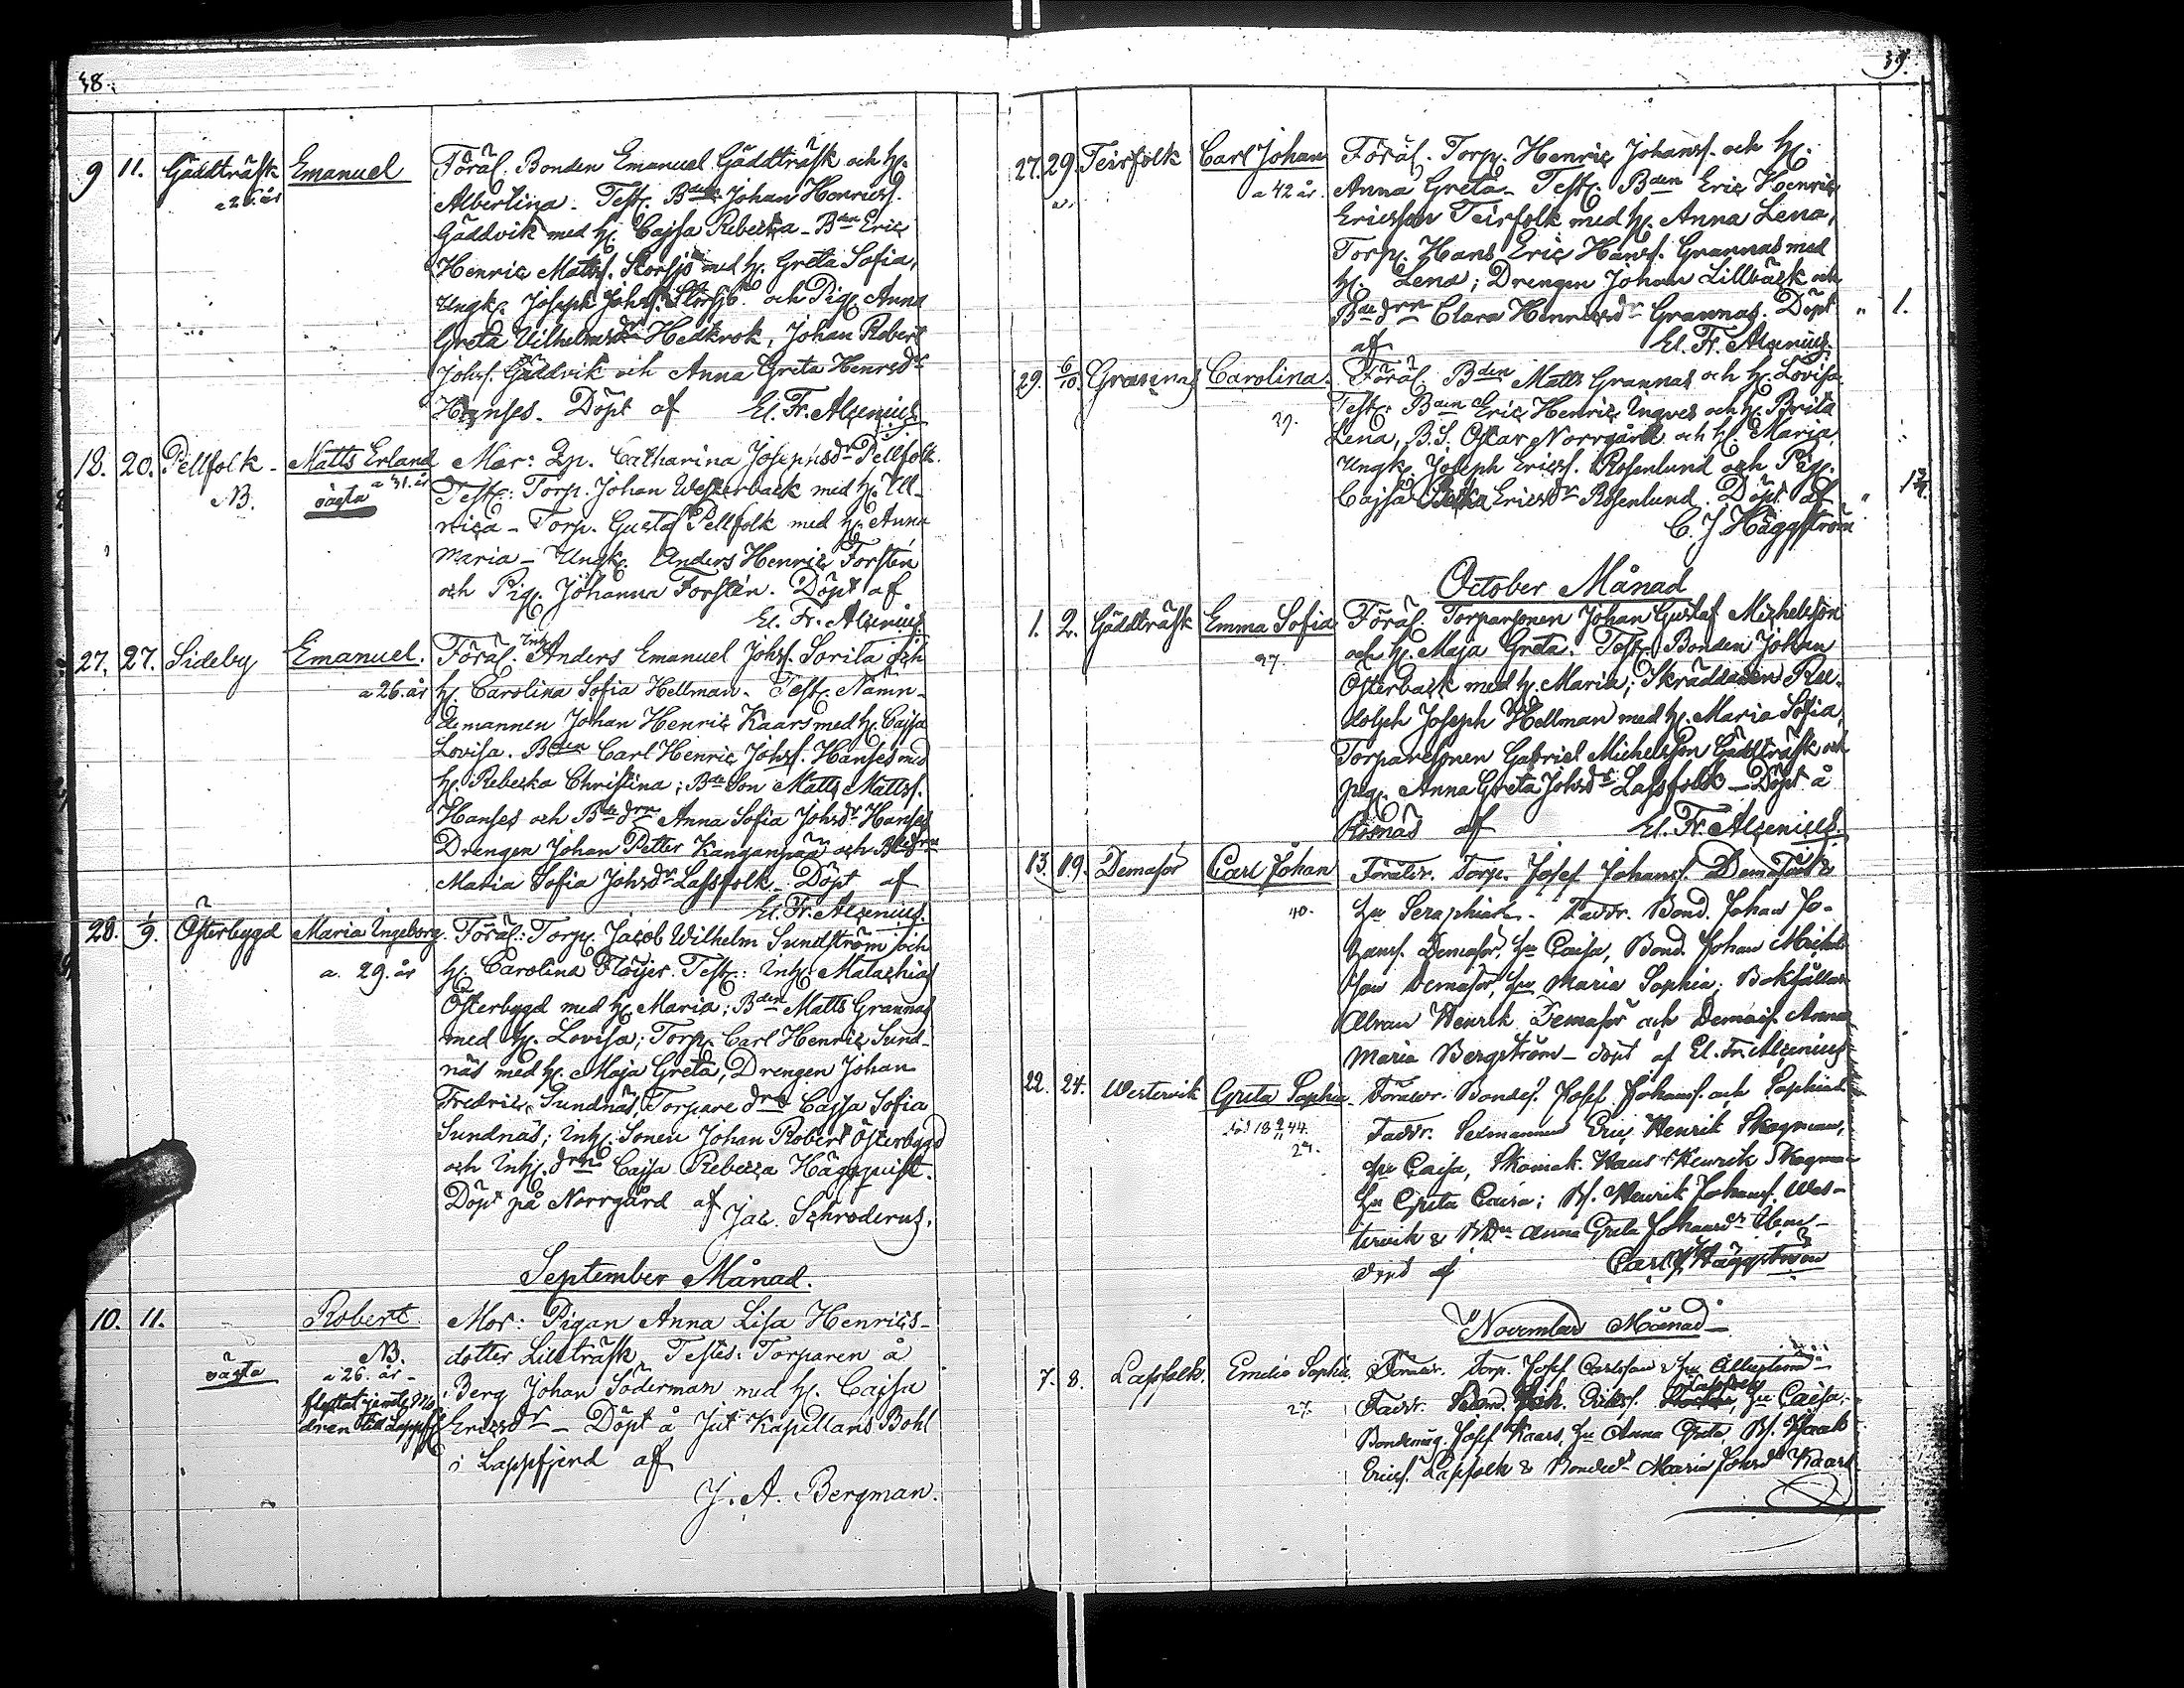 38.
9 11. Gäddträsk Emanuel Föräl. Bonden Emanuel Gäddträsk och H.
a 26 år Albertina. Test. Bden Johan Henricss.
Gäddvik med H. Cajsa Rebecka - Bden Eric
Henric Mattss. Storsjö med H. Greta Sofia,
Ungk. Joseph Johss. Storsjö och Pig. Anna
Greta Vilhelmsdr Hedkrok, Johan Robert
Johss. Gäddvik och Anna Greta Henrsdr
Hanses. Döpt af El. Fr. Alcenius
18. 20. Pellfolk - Matts Erland Mor: Catharina Josephsdr Pellfolk.
NB. oägta a 31. år Test: Torp. Johan Westerback med H. Ul-
rica - Torp. Gustaf Pellfolk med H. Anna
Maria - Ungk. Anders Henric Forstén
och Pig. Johanna Forstén. Döpt af
El. Fr. Alcenius
27. 27. Sideby Emanuel. Föräl. Inh. Anders Emanuel Johss. Sorila och
a 26. år H. Carolina Sofia Hellman. Test. Nämn-
demannen Johan Henric Kaars med H. Cajsa
Lovisa. Bden Carl Henric Johss. Hanses med
H. Rebecka Christina; Bde Son Matts Mattss.
Hanses och Bde drn Anna Sofia Johsdr Hanses
Drengen Johan Petter Kanganpää och
Maria Sofia Johsdr Lassfolk. Döpt af
El. Fr. Alcenius.
28. 1/9. Österbygd Maria Ingeborg. Föräl.: Torp. Jacob Wilhelm Sundström och
a. 29. år H. Carolina Flöijer. Test.: Inh. Malachias
Österbygd med H. Maria; Bden Matts Grannas
med H. Lovisa; Torp. Carl Henric Sund-
näs med H. Maja Greta, Drengen Johan
Fredric Sundnäs, Torpare drn Cajsa Sofia
Sundnäs; Inh. Sonen Johan Robert Österbygd
och Inh. drn Cajsa Rebecca Häggqvist.
Döpt på Norrgård af Jac. Schroderus.
September Månad.
10. 11. Robert Mor: Pigan Anna Lisa Henrics-
NB. dotter Lillträsk Testes: Torparen å
oägta a 26. år - Berg Johan Söderman med H. Cajsa
flyttat jemte Mo
dren till Lappfj. Ericsdr - Döpt å Kapellans Bohl
i Lappfjerd af
J. A. Bergman.
39.
27. 29. Teirfolk Carl Johan Föräl. Torp. Henric Johanss. och H.
a 42 år. Anna Greta - Test. Bden Eric Henric
Ericsson Teirfolk med H. Anna Lena,
Torp. Hans Eric Hanss. Grannas med
H. Lena; Drengen Johan Lillväsk och
Bde drn Clara Henricsdr Grannas. Döpt " 1.
af El. Fr. Alcenius.
29. 6/10. Grannas Carolina. Föräl. Bden Matts Grannas och H. Lovisa.
39. Test: Bden Eric Henric Ingves och H. Brita
Lena, B.S. Oskar Norrgård och H. Maria.
Ungk. Joseph Ericss. Rosenlund och Pig.
Cajsa Ericsdr Rosenlund. Döpt af "
C. J. Häggström
October Månad
1. 2. Gäddträsk Emma Sofia Föräl. Torparsonen Johan Gustaf Michelsson
27. och H. Maja Greta. Test. Bonden Johan
Österback med H. Maria; Skräddaren Ru-
dolph Joseph Hellman med H. Maria Sofia,
Torparesonen Gabriel Michelsson Gäddträsk och
Pig. Anna Greta Johsdr Lassfolk - Döpt å
Risnäs af El. Fr. Alcenius.
13. 19. Demasör Carl Johan Föräldr. Torp. Josef Johanss. Demasör &
40. Hu Seraphia. Faddr. Bond. Johan Jo-
hanss. Demasör, Hu Caisa, Bond. Johan Mickels
son Demasör, Hu Maria Sophia; Bokhållar
Abram Henrik Demasör och Demois. Anna
Maria Bergström - döpt af El. Fr. Alcenius
22. 24. Westervik Greta Sophia Föräldr. Bondes. Josef Johanss. och Sophia
27. Faddr. Sexmannen Eric Henrik Skogman,
Hu Caisa, Skomak. Hans Henrik Skogman
Hu Greta Caisa; Bs. Henrik Johanss. Wes-
tervik & Anna Greta Johansdr
döpt af Carl J. Häggström
November Månad
7. 8. Lappfolk. Emilia Sophia. Föräldr. Torp. Josef Carlsson & Hu Albertina -
27. Faddr. Bond. Erik Erikss. Lappfolk, Hu Caisa,
Bondemåg. Josef Kaars, Hu Anna Greta, Bs. Isaak
Ericss. Lappfolk & Bondedr Maria Johsdr Kaars